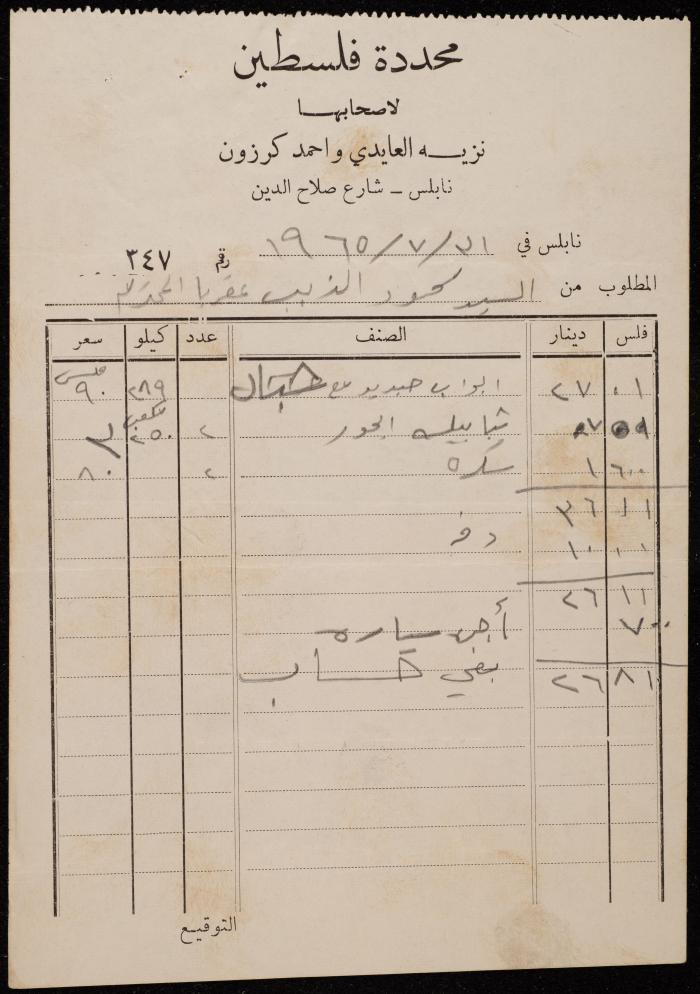 محددة فلسطين
لاصحابها
نزيه العايدي واحمد كرزون
نابلس ــ شارع صلاح الدين
نابلس في ٣١ / ٧ / ١٩٦٥
رقم ٣٤٧
المطلوب من السيد محمود الذيب عقربا المحترم
فلس دينار الصنف عدد كيلو سعر
٠١ ٢٧ ابواب حديد مع ٢٨٩ ٩٠ فلس
شبابيك ٢ ٢٥٠ ٣
٦٠٠ ١ سكره ٢ ٨٠
١١ ٣٦
٠٠ ١٠ دفع
١١ ٢٦
٧٠٠ أجرة سياره
٨١ ٢٦ بقي حساب
التوقيع